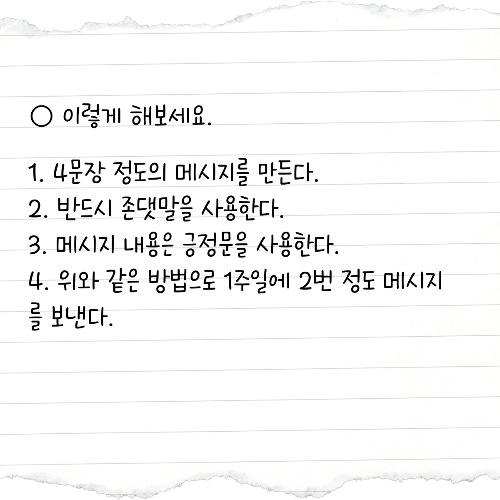 ○ 이렇게 해보세요.
1. 4문장 정도의 메시지를 만든다.
2. 반드시 존댓말을 사용한다.
3. 메시지 내용은 긍정문을 사용한다.
4. 위와 같은 방법으로 1주일에 2번 정도 메시지
를 보낸다.